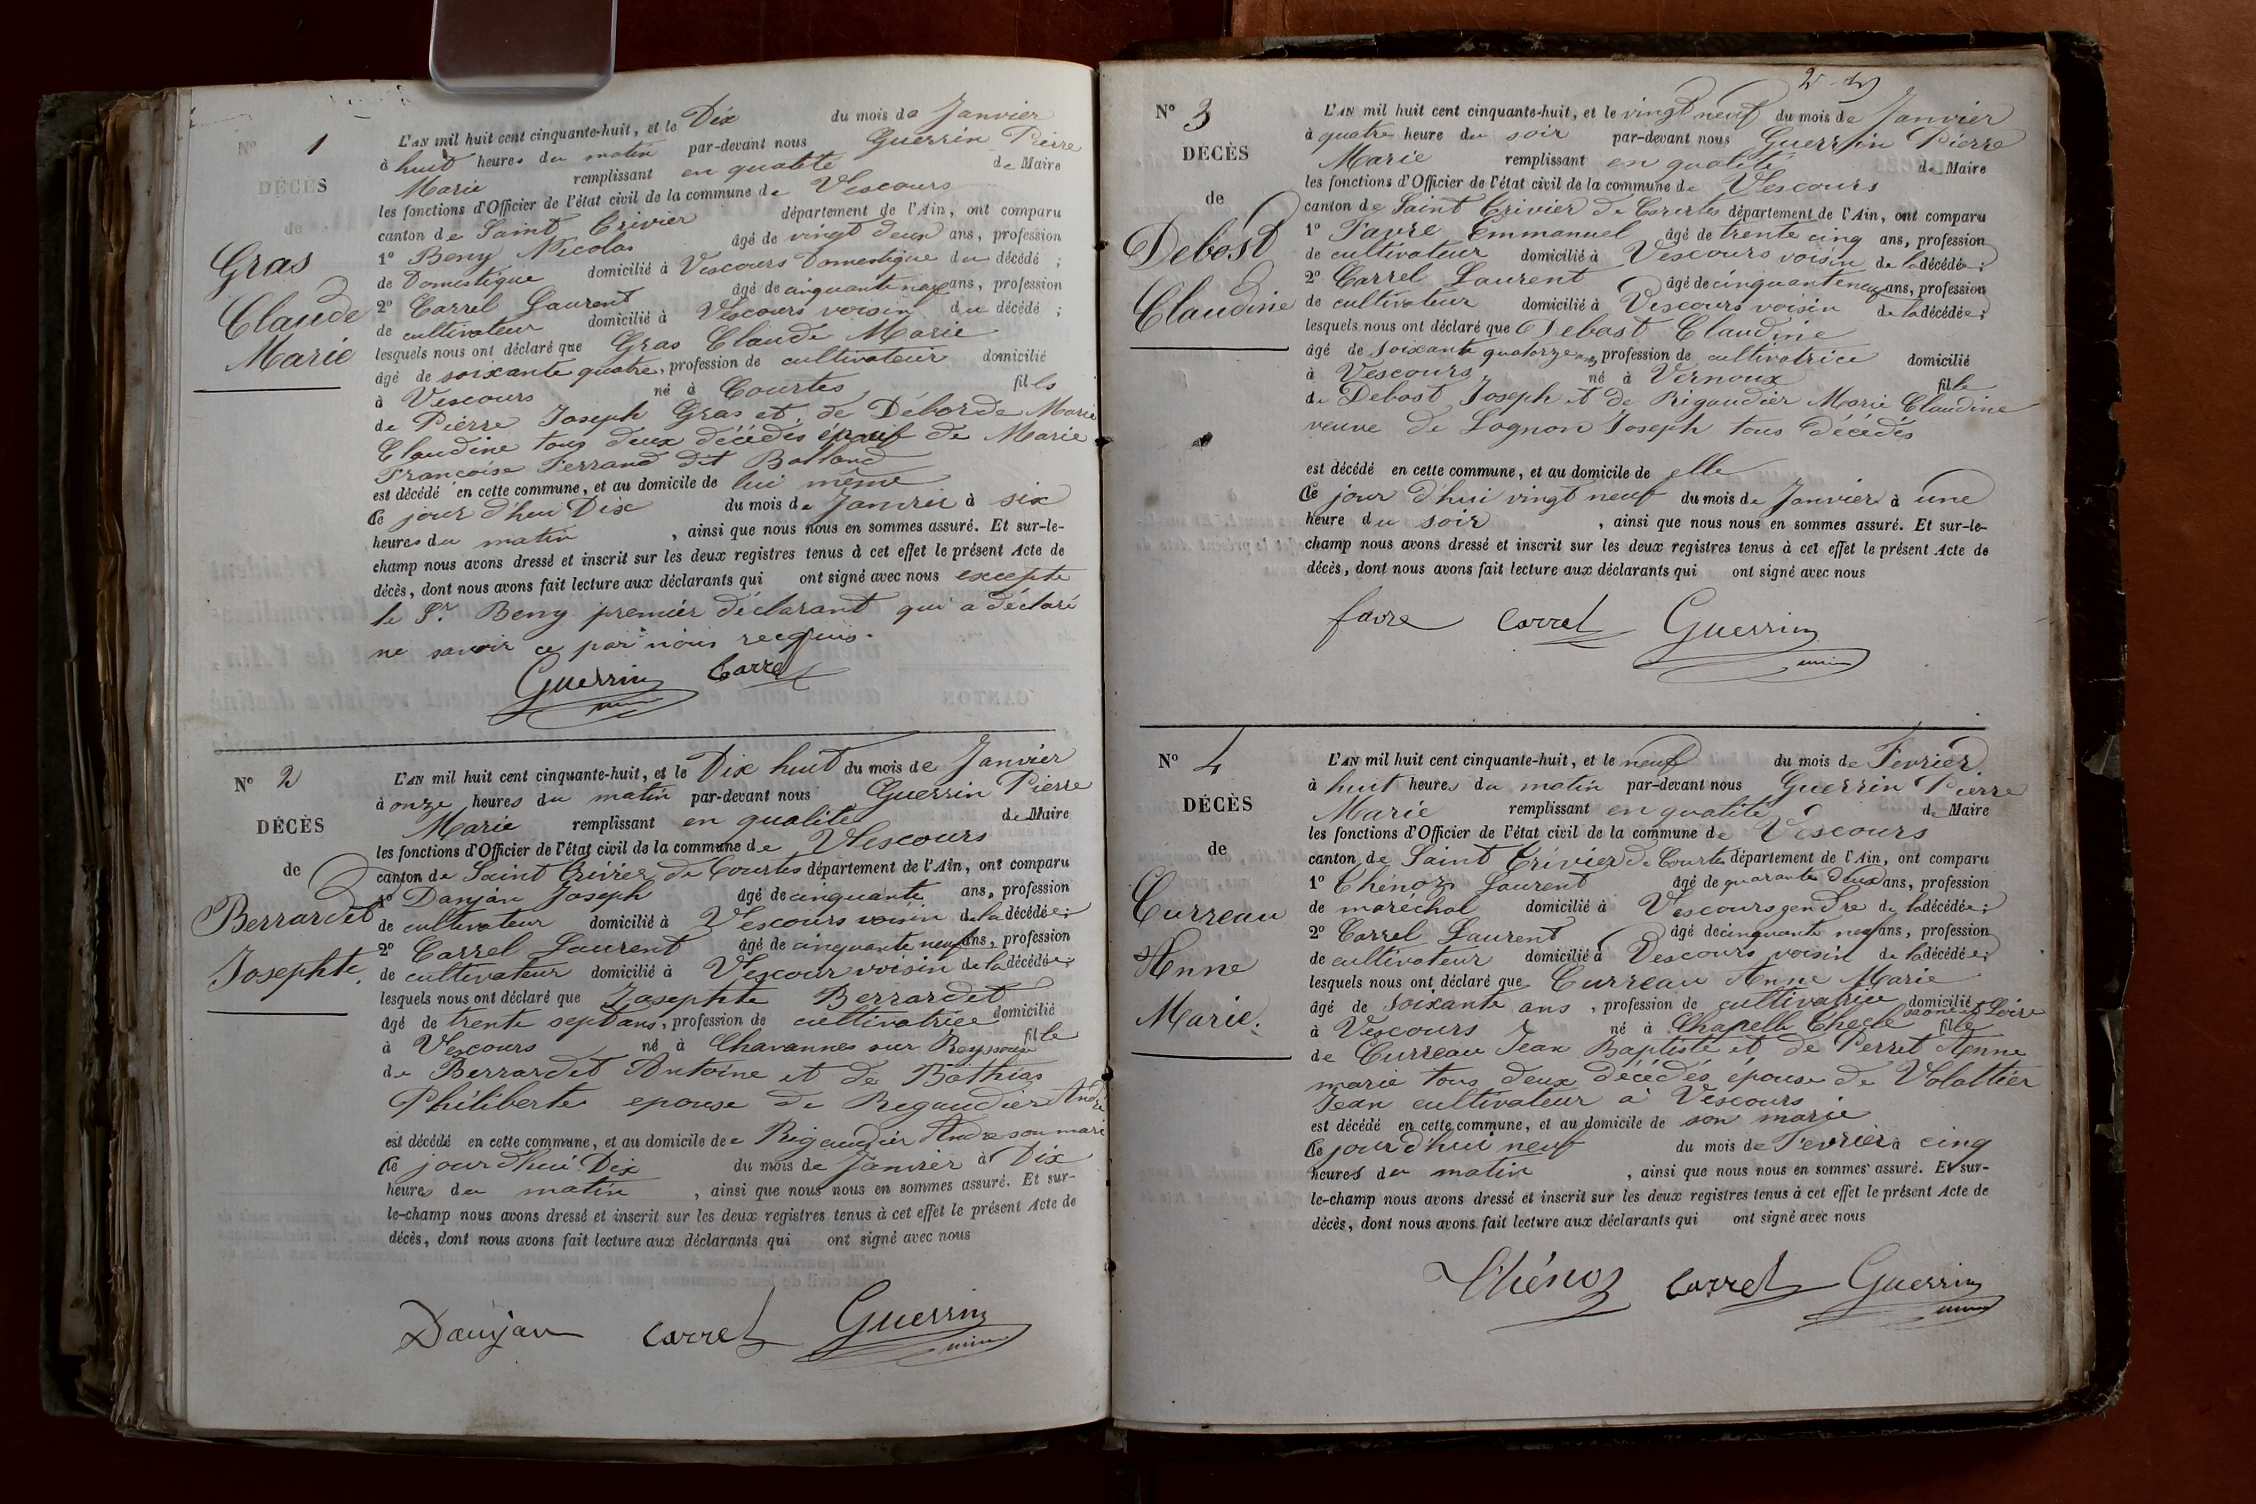 N° 1
DÉCÈS
de
Gras
Claude
Marie
L'AN mil huit cent cinquante-huit, et le Dix du mois de Janvier
à huit heures du matin par-devant nous Guerrin Pierre
Marie remplissant en qualité de Maire
les fonctions d'Officier de l'état civil de la commune de Vescours
canton de Saint Trivier département de l'Ain, ont comparu
1° Beny Nicolas âgé de vingt deux ans, profession
de Domestique domicilié à Vescours Domestique du décédé ;
2° Carrel Laurent âgé de cinquante neuf ans, profession
de cultivateur domicilié à Vescours voisin du décédé ;
lesquels nous ont déclaré que Gras Claude Marie
âgé de soixante quatre, profession de cultivateur domicilié
à Vescours né à Courtes fils
de Pierre Joseph Gras et de Déborde Marie
Claudine tous deux décédés époux de Marie
Francoise Ferrand dit Balland
est décédé en cette commune, et au domicile de lui même
Ce jour d'hui Dix du mois de Janvier à six
heures du matin , ainsi que nous nous en sommes assuré. Et sur-le-
champ nous avons dressé et inscrit sur les deux registres tenus à cet effet le présent Acte de
décès, dont nous avons fait lecture aux déclarants qui ont signé avec nous excepte
le Sr. Beny premier déclarant qui a déclaré
ne savoir ce par nous recquis.
Guerrin Carrel
N° 2
DÉCÈS
de
Berrardet
Josephte.
L'AN mil huit cent cinquante-huit, et le Dix huit du mois de Janvier
à onze heures du matin par-devant nous Guerrin Pierre
Marie remplissant en qualite de Maire
les fonctions d'Officier de l'état civil de la commune de Vescours
canton de Saint Trivier de Courtes département de l'Ain, ont comparu
1° Danjan Joseph âgé de cinquante ans, profession
de cultivateur domicilié à Vescours voisin de la décédée ;
2° Carrel Laurent âgé de cinquante neuf ans, profession
de cultivateur domicilié à Vescour voisin de la décédée ;
lesquels nous ont déclaré que Josephte Berrardet
âgé de trente sept ans, profession de cultivatrice domicilié
à Vescours né à Chavannes sur Reyssouze fille
de Berrardet Antoine et de Bathias
Philiberte epouse de Regaudier André
est décédé en cette commune, et au domicile de Rigaudier Andre son mari
Ce jour d'hui Dix du mois de Janvier à Dix
heures du matin , ainsi que nous nous en sommes assuré. Et sur-
le-champ nous avons dressé et inscrit sur les deux registres tenus à cet effet le présent Acte de
décès, dont nous avons fait lecture aux déclarants qui ont signé avec nous
Danjan Carrel Guerrin
N° 3
DÉCÈS
de
Debost
Claudine
L'AN mil huit cent cinquante-huit, et le vingt neuf du mois de Janvier
à quatre heure du soir par-devant nous Guerrin Pierre
Marie remplissant en qualité de Maire
les fonctions d'Officier de l'état civil de la commune de Vescours
canton de Saint Trivier de Courtes département de l'Ain, ont comparu
1° Favre Emmanuel âgé de trente cinq ans, profession
de cultivateur domicilié à Vescours voisin de la décédée ;
2° Carrel Laurent âgé de cinquante neuf ans, profession
de cultivateur domicilié à Vescours voisin de la décédée ;
lesquels nous ont déclaré que Debost Claudine
âgé de soixante quatorze ans, profession de cultivatrice domicilié
à Vescours né à Vernoux fille
de Debost Joseph et de Rigaudier Marie Claudine
veuve de Lognon Joseph tous décédés
est décédé en cette commune, et au domicile de elle
Ce jour d'hui vingt neuf du mois de Janvier à une
heure du soir , ainsi que nous nous en sommes assuré. Et sur-le-
champ nous avons dressé et inscrit sur les deux registres tenus à cet effet le présent Acte de
décès, dont nous avons fait lecture aux déclarants qui ont signé avec nous
favre Carrel Guerrin
N° 4
DÉCÈS
de
Curreau
Anne
Marie.
L'AN mil huit cent cinquante-huit, et le neuf du mois de Fevrier
à huit heures du matin par-devant nous Guerrin Pierre
Marie remplissant en qualité de Maire
les fonctions d'Officier de l'état civil de la commune de Vescours
canton de Saint Trivier de Courtes département de l'Ain, ont comparu
1° Thénoz Laurent âgé de quarante deux ans, profession
de maréchal domicilié à Vescours gendre de la décédée ;
2° Carrel Laurent âgé de cinquante neuf ans, profession
de cultivateur domicilié à Vescours voisin de la décédée ;
lesquels nous ont déclaré que Curreau Anne Marie
âgé de soixante ans , profession de cultivatrice domicilié
à Vescours né à Chapelle Thecle saone et Loire fille
de Curreau Jean Baptiste et de Perret Anne
marie tous deux décédés épouse de Volattier
Jean cultivateur à Vescours
est décédé en cette commune, et au domicile de son marie
Ce jourd'hui neuf du mois de Fevrier à cinq
heures du matin , ainsi que nous nous en sommes assuré. Et sur-
le-champ nous avons dressé et inscrit sur les deux registres tenus à cet effet le présent Acte de
décès, dont nous avons fait lecture aux déclarants qui ont signé avec nous
Thénoz Carrel Guerrin